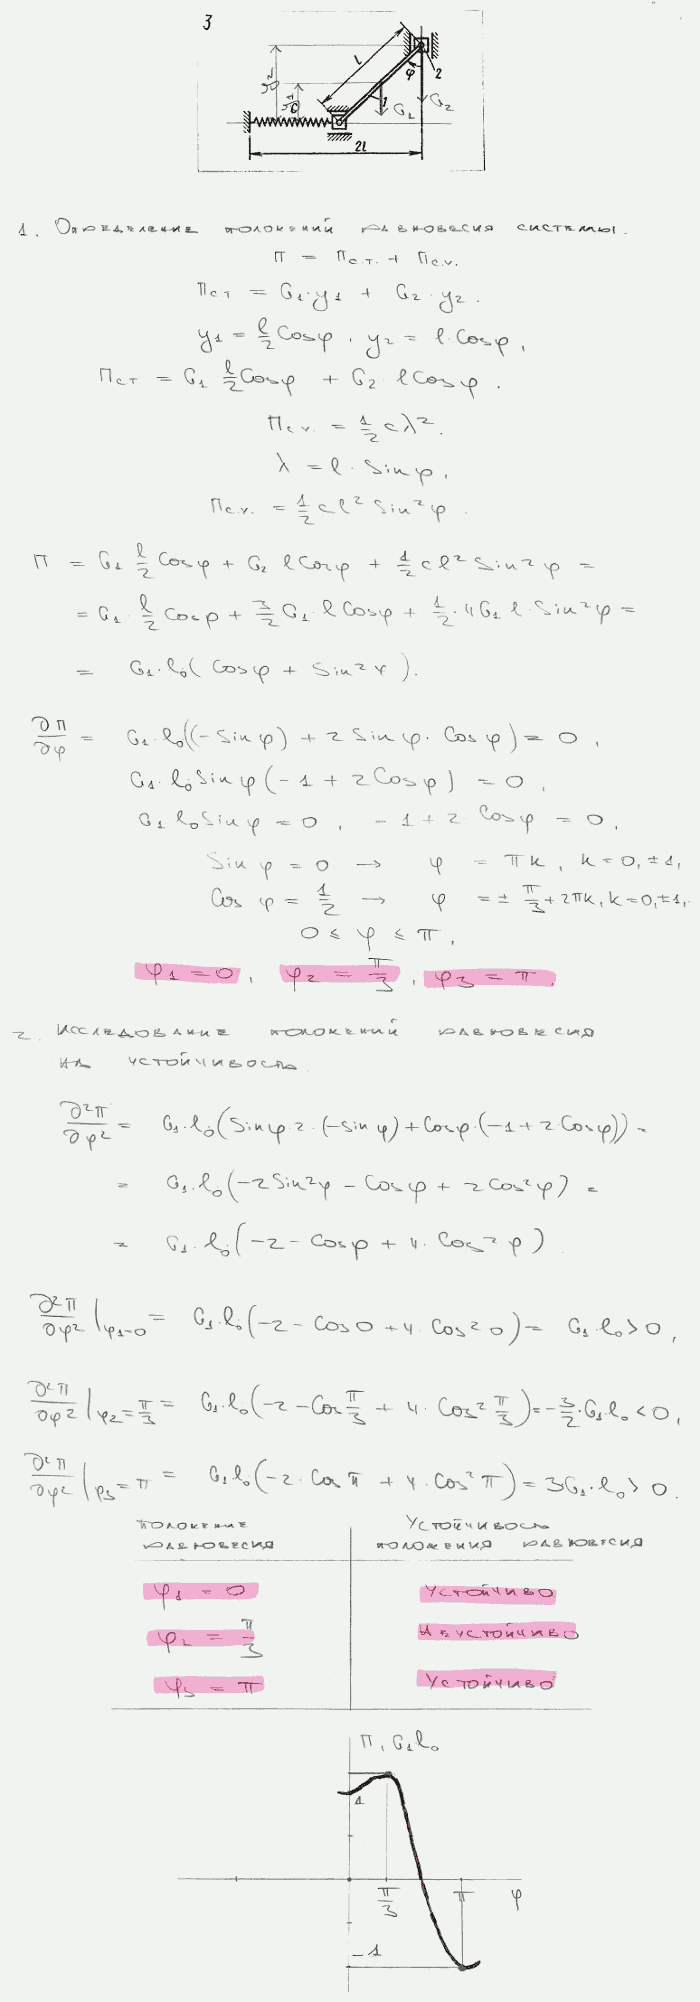 3
l
φ
2
y₂
y₁
c
1
G₁
G₂
2l
1. Определение положений равновесия системы.
П = Пс.т. + Пс.у.
Пст = G₁·y₁ + G₂·y₂.
y₁ = l/2 Cosφ, y₂ = l·Cosφ,
Пст = G₁ l/2 Cosφ + G₂ l Cosφ.
Пс.у. = 1/2 cλ².
λ = l · Sinφ,
Пс.у. = 1/2 cl² Sin²φ.
П = G₁ l/2 Cosφ + G₂ l Cosφ + 1/2 cl² Sin²φ =
= G₁ · l/2 Cosφ + 3/2 G₁ · l Cosφ + 1/2 · 4G₁ l · Sin²φ =
= G₁·l₀( Cosφ + Sin²φ ).
∂П/∂φ = G₁·l₀((-Sinφ) + 2 Sinφ · Cosφ) = 0,
G₁·l₀ Sinφ(-1 + 2Cosφ) = 0,
G₁ l₀ Sinφ = 0, -1 + 2 · Cosφ = 0,
Sinφ = 0 → φ = πk, k = 0, ±1,
Cosφ = 1/2 → φ = ± π/3 + 2πk, k = 0, ±1,
0 ≤ φ ≤ π,
φ₁ = 0, φ₂ = π/3, φ₃ = π.
2. Исследование положений равновесия
на устойчивость.
∂²П/∂φ² = G₁·l₀(Sinφ·2·(-Sinφ) + Cosφ·(-1 + 2Cosφ)) =
= G₁·l₀(-2Sin²φ - Cosφ + 2Cos²φ) =
= G₁·l₀(-2 - Cosφ + 4·Cos²φ)
∂²П/∂φ²|φ₁=0 = G₁·l₀(-2 - Cos0 + 4·Cos²0) = G₁·l₀ > 0,
∂²П/∂φ²|φ₂=π/3 = G₁·l₀(-2 - Cos π/3 + 4·Cos² π/3) = -3/2·G₁·l₀ < 0,
∂²П/∂φ²|φ₃=π = G₁l₀(-2·Cosπ + 4·Cos²π) = 3G₁·l₀ > 0.
Положение Устойчивость
равновесия положения равновесия
φ₁ = 0 Устойчиво
φ₂ = π/3 Неустойчиво
φ₃ = π Устойчиво
П, G₁l₀
1
π/3
π
φ
-1